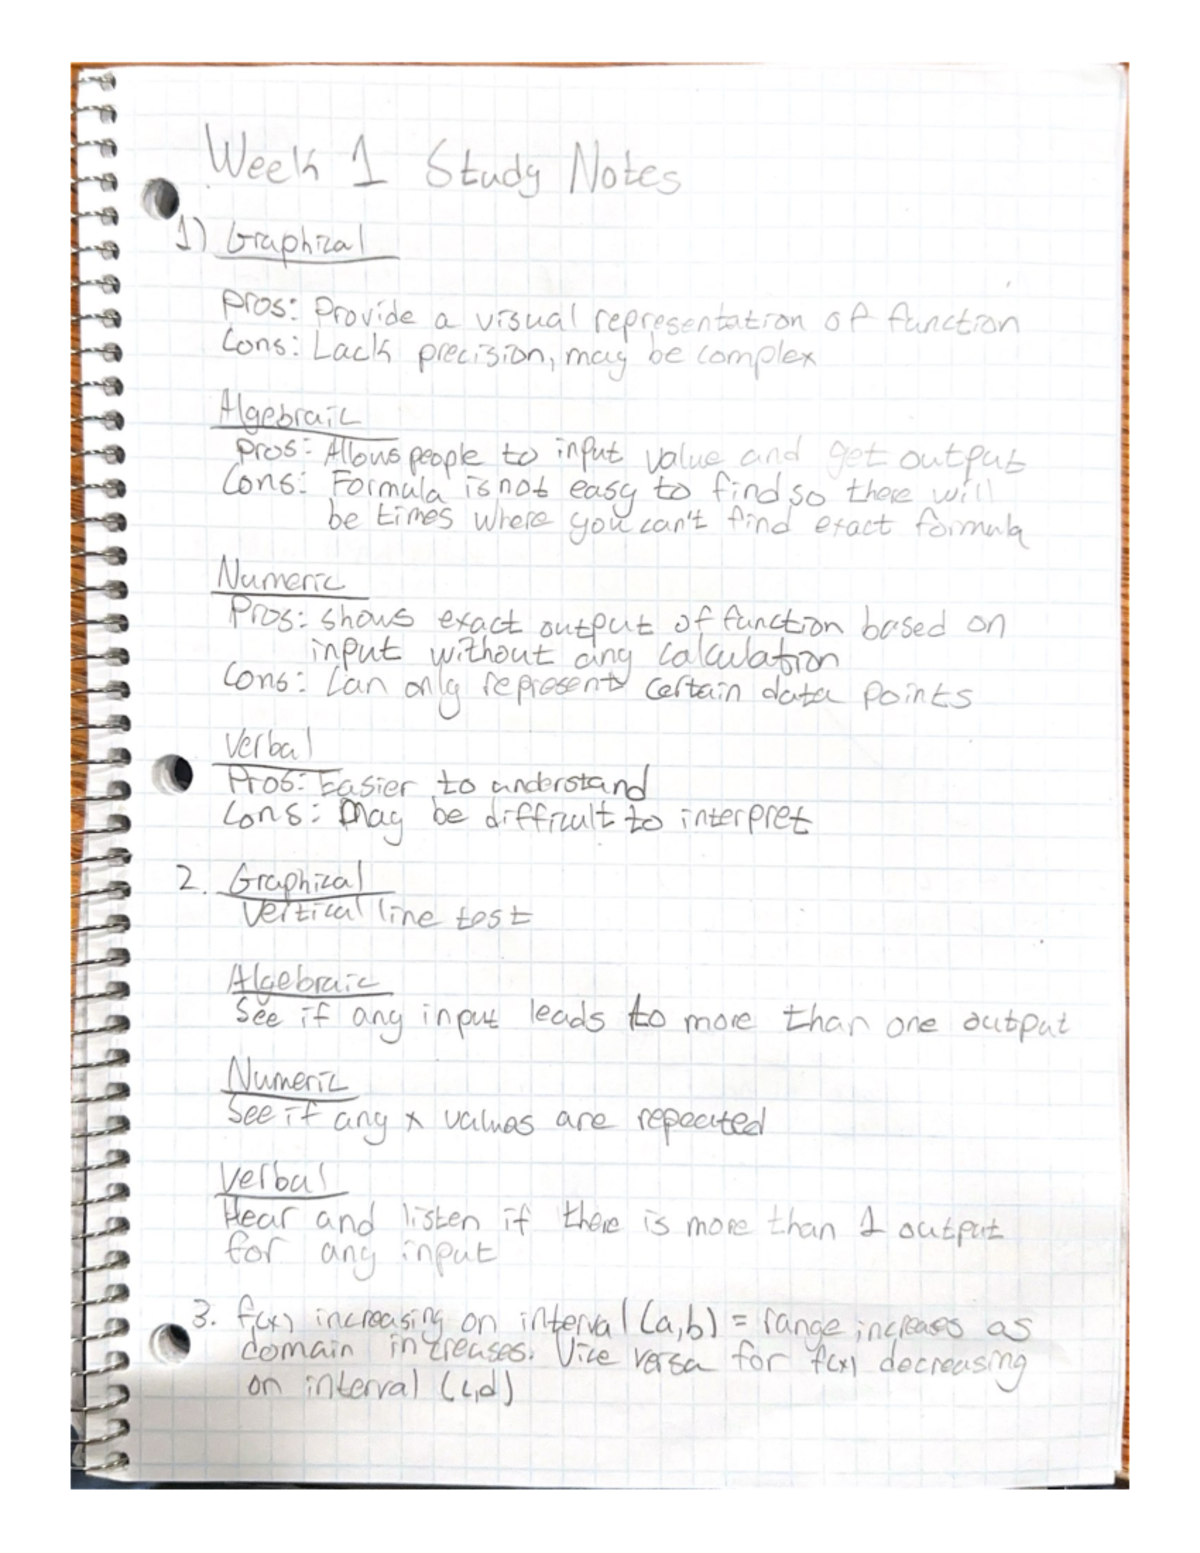 Week 1 Study Notes
1) Graphical
Pros: Provide a visual representation of function
Cons: Lack precision, may be complex
Algebraic
Pros: Allows people to input value and get output
Cons: Formula is not easy to find so there will
be times where you can't find exact formula
Numeric
Pros: shows exact output of function based on
input without any calculation
Cons: Can only represent certain data points
Verbal
Pros: Easier to understand
Cons: May be difficult to interpret
2. Graphical
Vertical line test
Algebraic
See if any input leads to more than one output
Numeric
See if any x values are repeated
Verbal
Hear and listen if there is more than 1 output
for any input
3. f(x) increasing on interval (a,b) = range increases as
domain increases. Vice versa for f(x) decreasing
on interval (c,d)